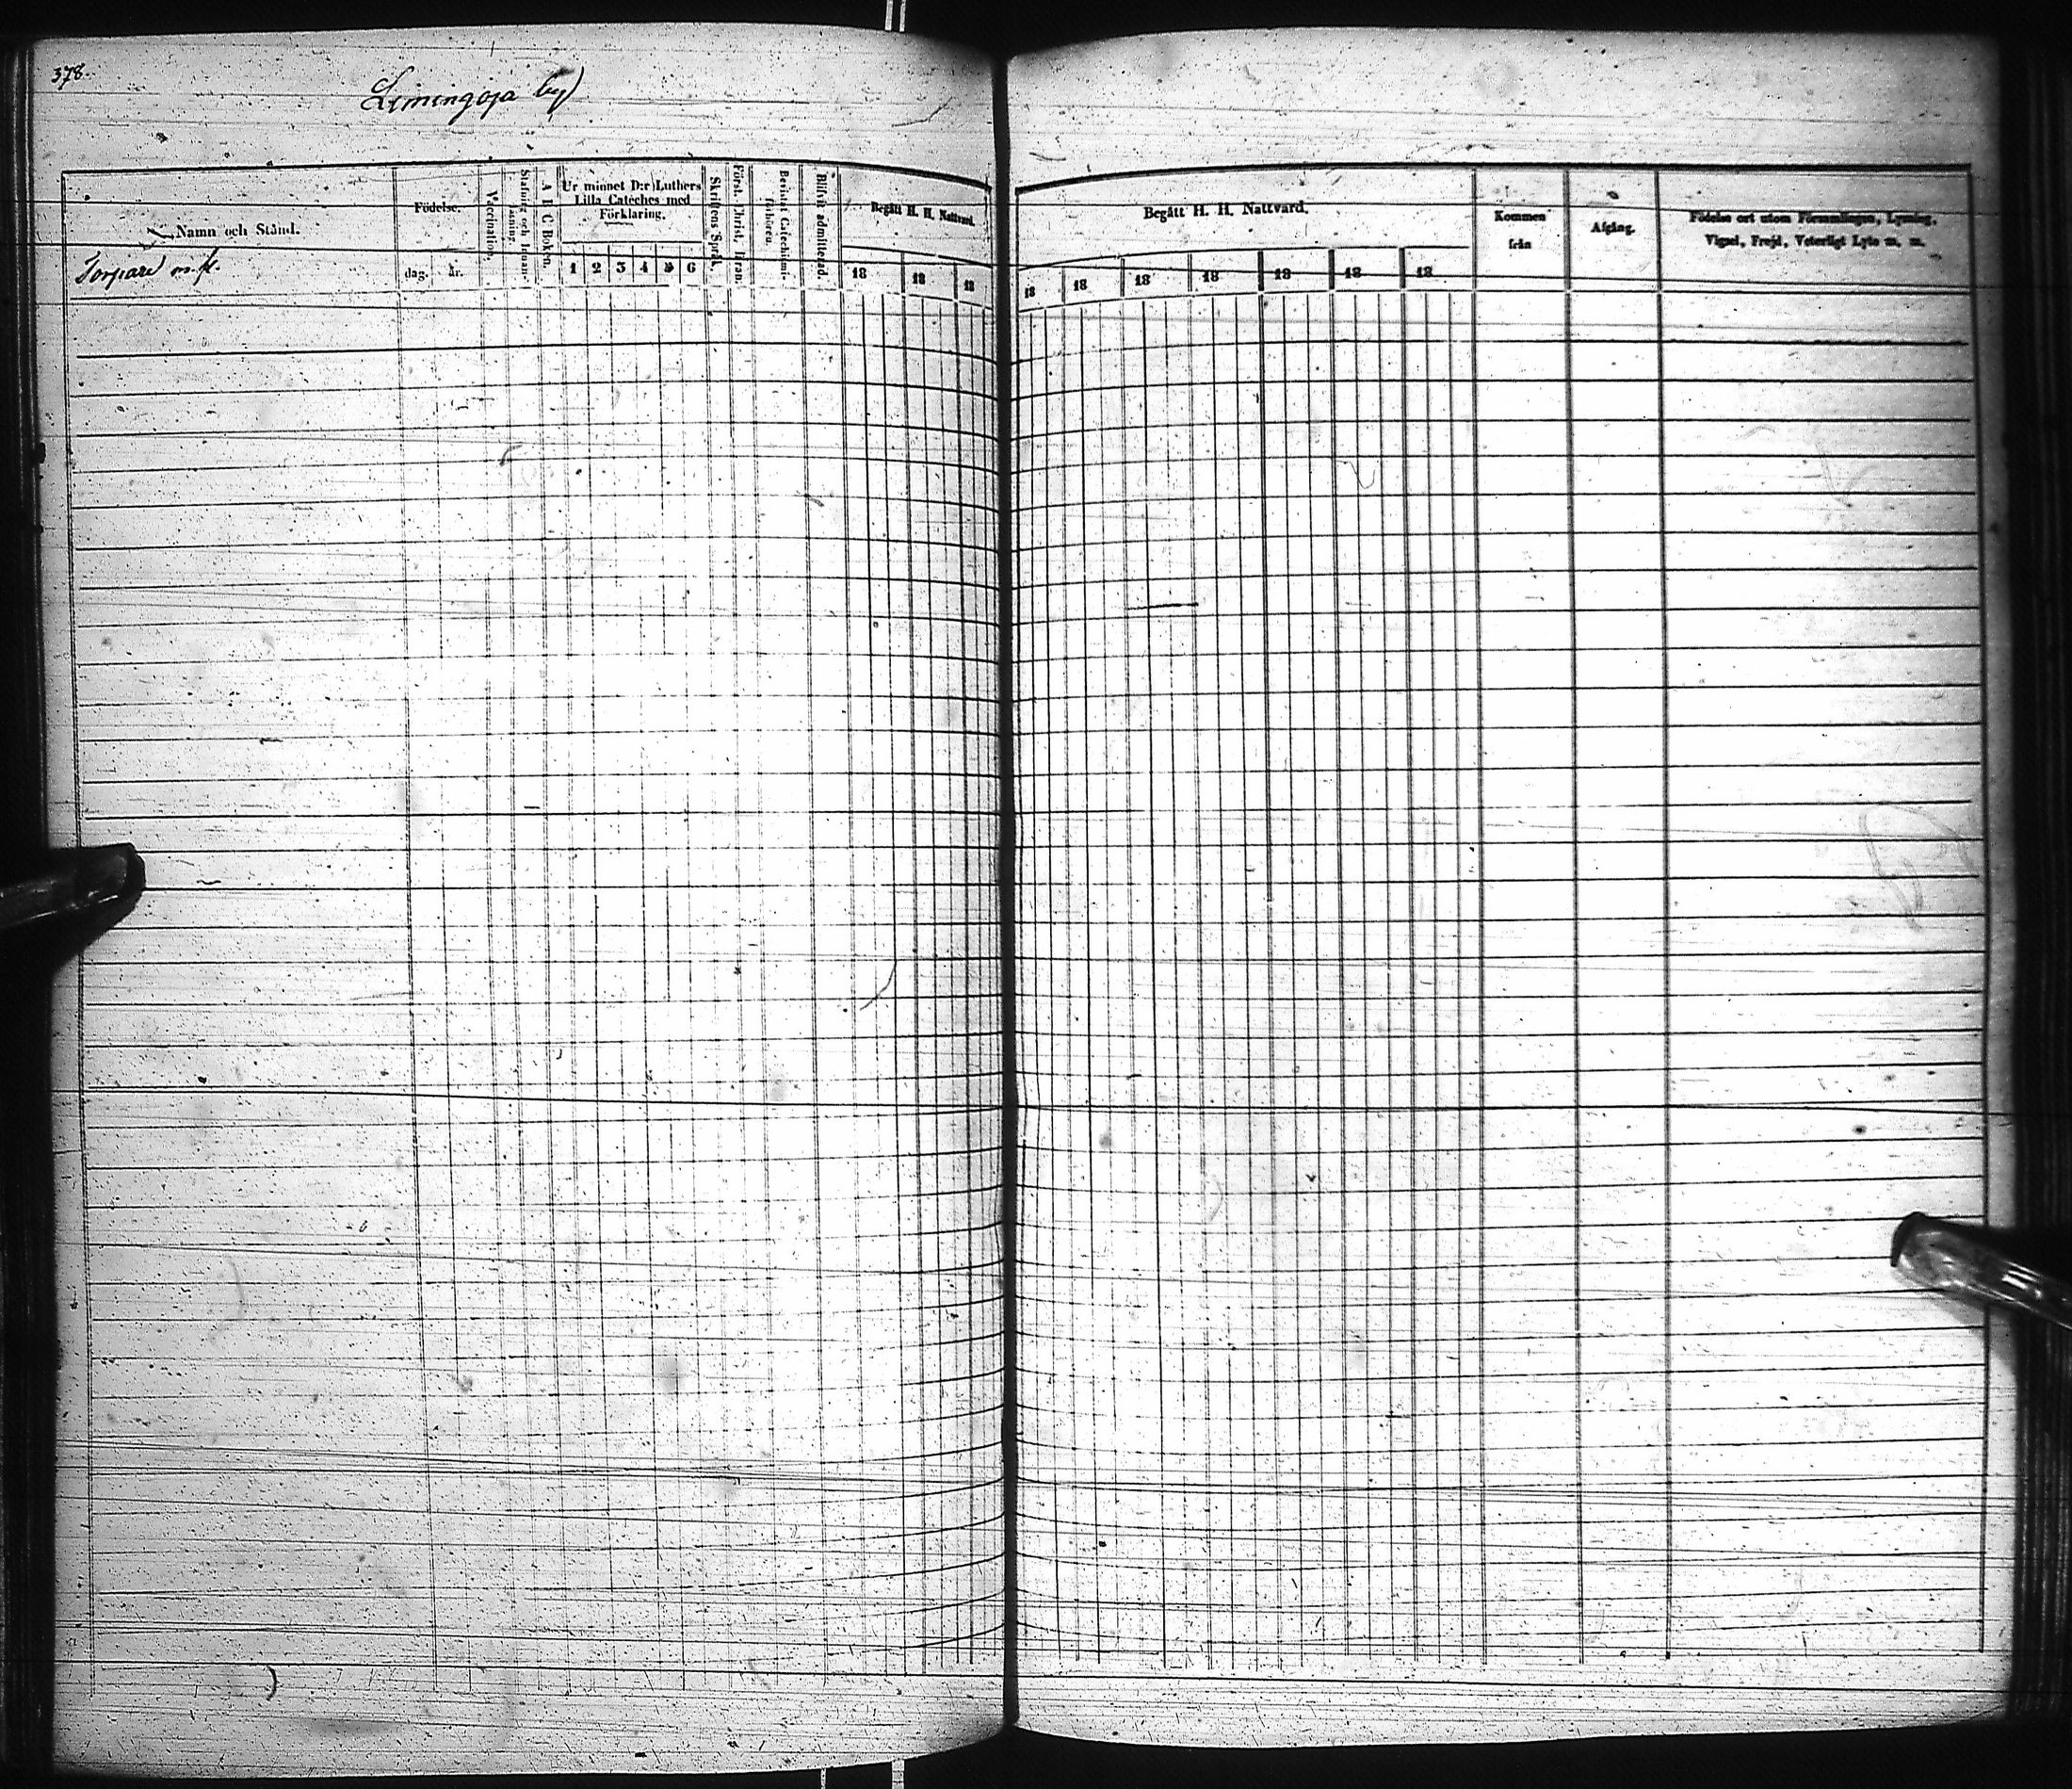 378.
Limingoja by
Namn och Stånd.
Torpare m. fl.
Födelse.
dag.
år.
Vaccination.
Stafning och Innan-
läsning.
A B C Boken.
Ur minnet D:r Luthers
Lilla Catèches med
Förklaring.
1 2 3 4 5 6
Skriftens Språk.
Först. Christ. Läran.
Bevistat Catechismi-
förhören.
Blifvit admitterad.
Begått H. H. Nattvard.
18 18 18
Begått H. H. Nattvard.
18 18 18 18 18 18 18
Kommen
från
Afgång.
Födelse ort utom Församlingen, Lysning,
Vigsel, Frejd, Veterligt Lyte m. m.